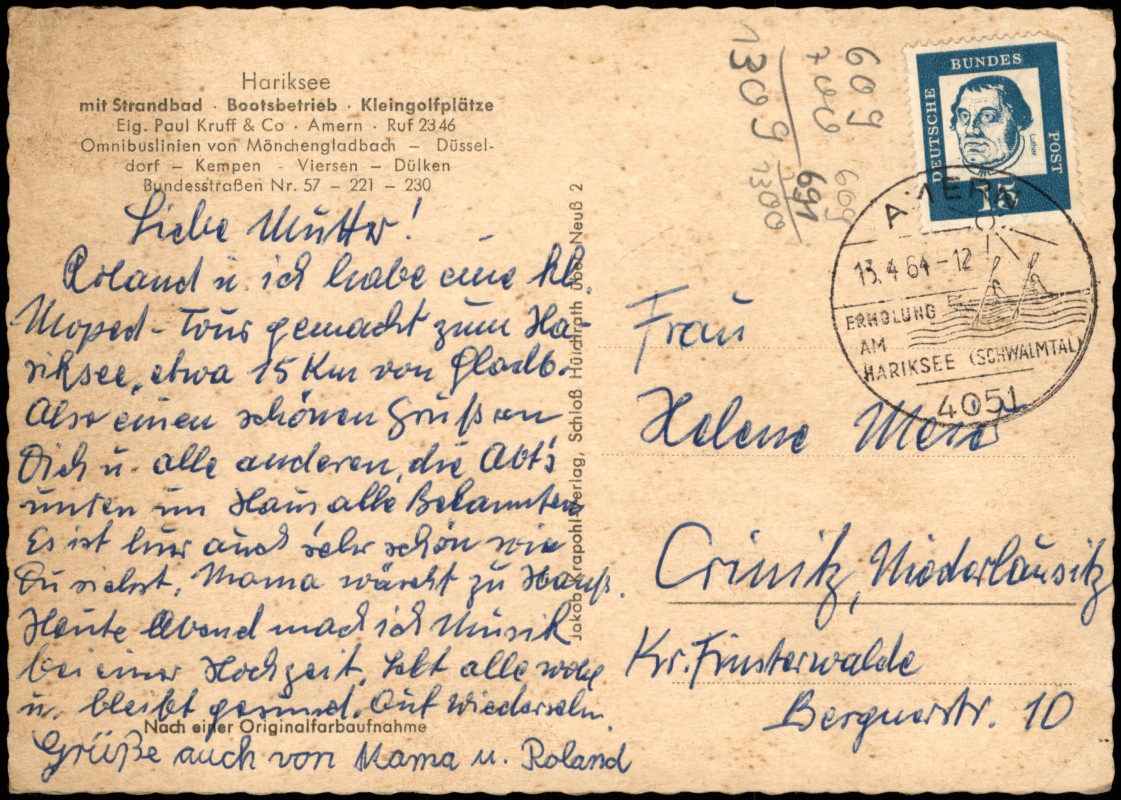 Hariksee
mit Strandbad · Bootsbetrieb · Kleingolfplätze
Eig. Paul Kruff & Co · Amern · Ruf 2346
Omnibuslinien von Mönchengladbach — Düssel-
dorf — Kempen - Viersen — Dülken
Bundesstraßen Nr. 57 — 221 — 230
Liebe Mutter!
Roland u. ich habe eine kl.
Moped-Tour gemacht zum Ha-
riksee, etwa 15 Km von Gladb.
Also einen schönen Gruß an
Dich u. alle anderen, die Abt's
unten im Haus alle Bekannten
Es ist hier auch sehr schön wie
Du siehst. Mama wäscht zu Haus.
Heute Abend mach ich Musik
bei einer Hochzeit. Lebt alle wohl
u. bleibt gesund. Auf Wiedersehn.
Nach einer Originalfarbaufnahme
Grüße auch von Mama u. Roland
Jakob Krapohl-Verlag, Schloß Hülchrath über Neuß 2
609
7009
1309
609
691
1300
DEUTSCHE
BUNDES
POST
Luther
15
AMERN
13.4.64-12
ERHOLUNG
AM
HARIKSEE (SCHWALMTAL)
4051
Frau
Helene
Crinitz, Niederlausitz
Kr. Finsterwalde
Bergnerstr. 10